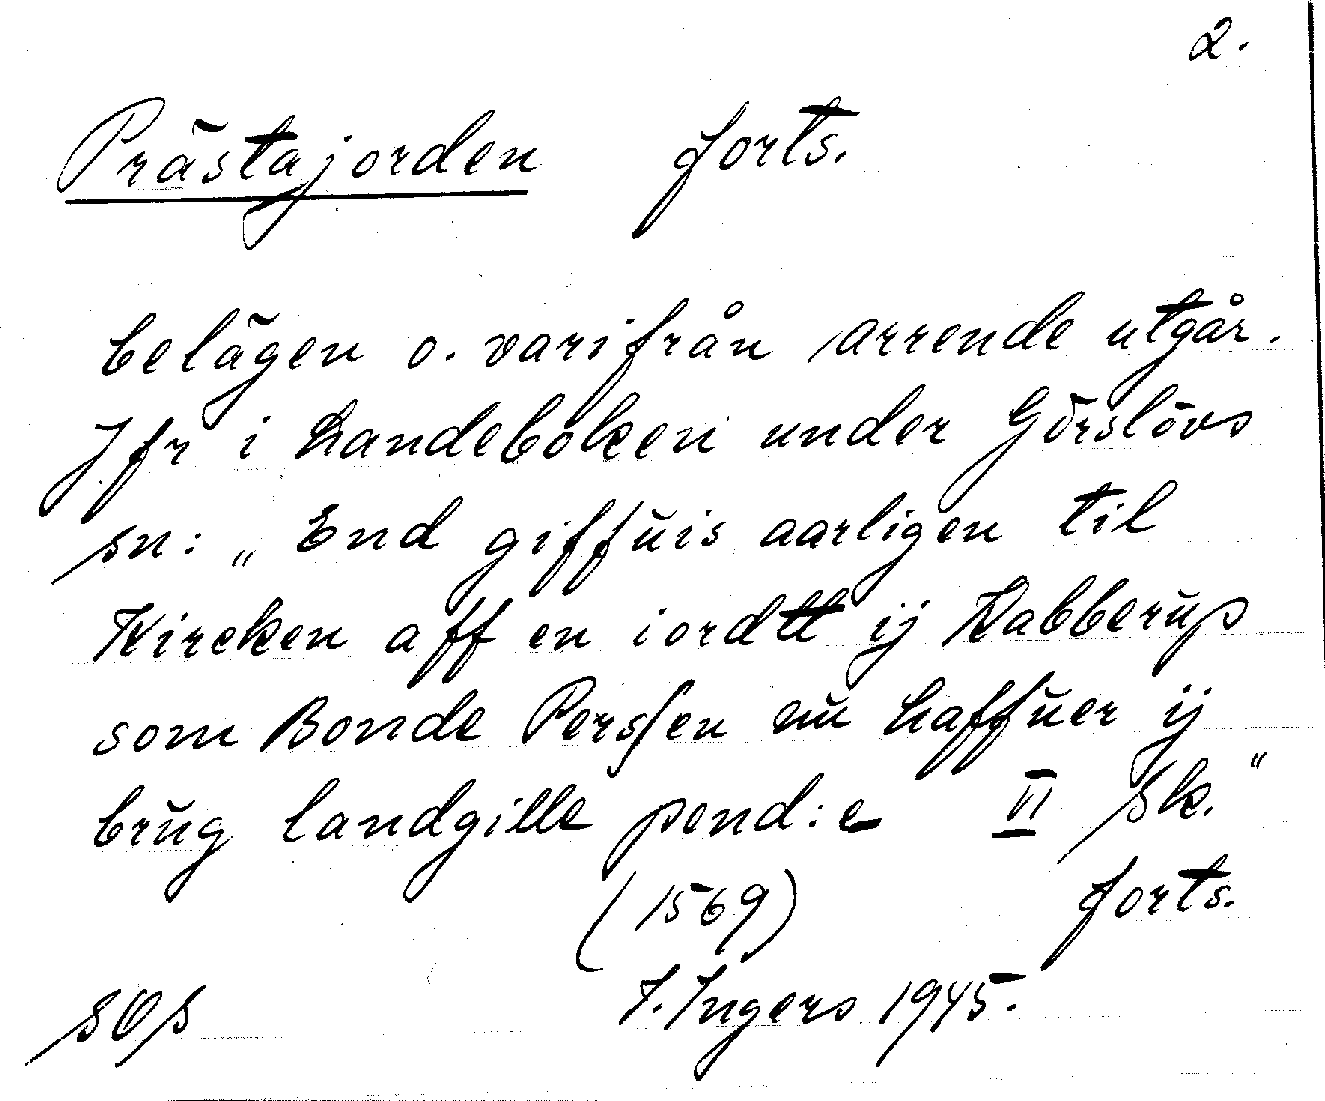 2.
Prästajorden forts.
belägen o. varifrån arrende utgår.
Jfr i Landeboken under Görslövs
sn: „ End giffuis aarligen til
Kircken aff en iordtt ij Kabberup
som Bonde Perssen nu haffuer ij
brug landgille pend:e VI sk."
(1569) forts.
SOS I. Ingers 1945.